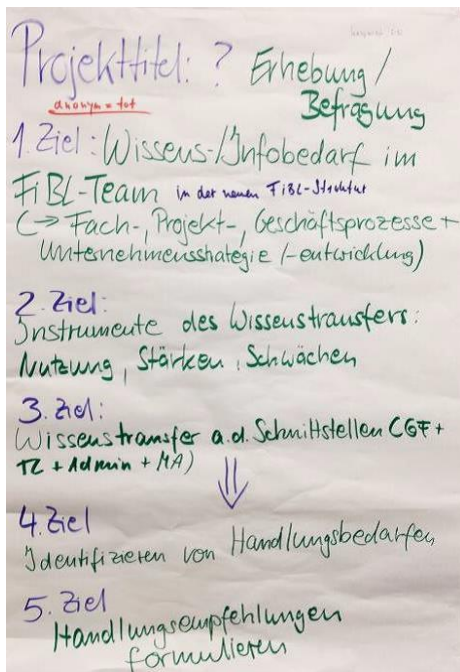 Projekttitel: ? Erhebung /
anonym = tot Befragung
1. Ziel: Wissens-/Infobedarf im
FiBL-Team in der neuen FiBL-Struktur
(→ Fach-, Projekt-, Geschäftsprozesse +
Unternehmensstrategie (-entwicklung)
2. Ziel:
Instrumente des Wissenstransfers:
Nutzung, Stärken, Schwächen
3. Ziel:
Wissenstransfer a.d. Schnittstellen (GF +
TL + Admin + MA)
4. Ziel
Identifizieren von Handlungsbedarfen
5. Ziel
Handlungsempfehlungen
formulieren